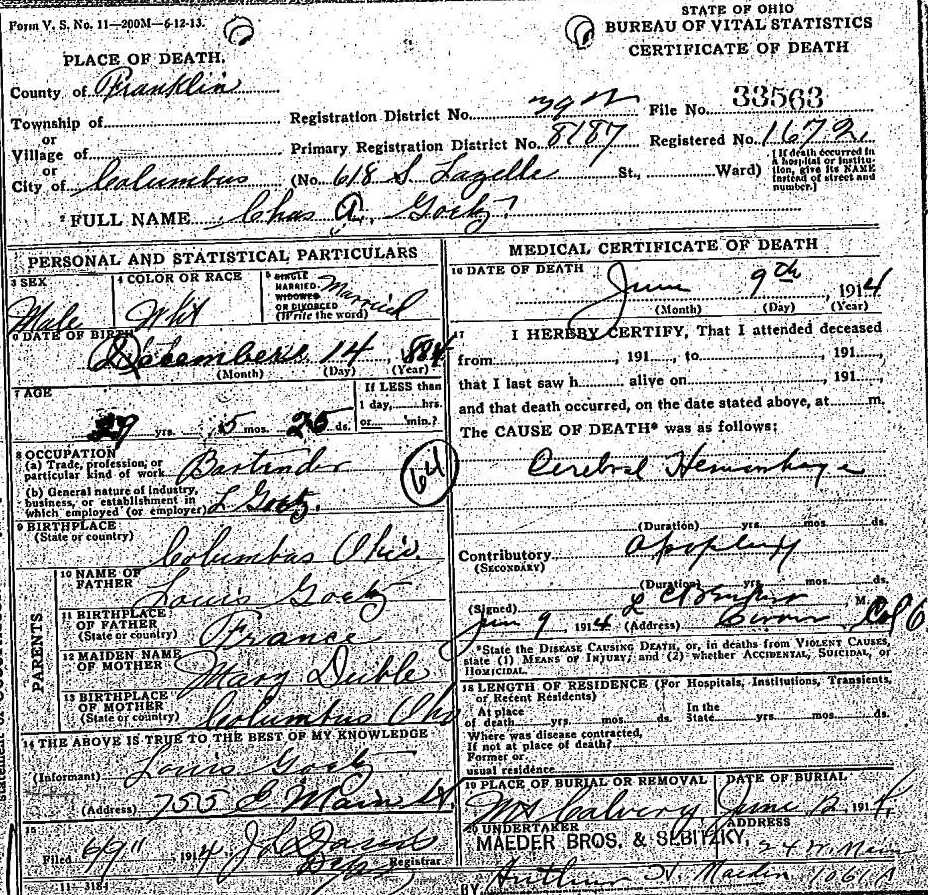 Form V. S. No. 11—200M—6-12-13.
STATE OF OHIO
BUREAU OF VITAL STATISTICS
CERTIFICATE OF DEATH
PLACE OF DEATH.
County of Franklin
Township of
or
Village of
or
City of Columbus
Registration District No.
File No. 33563
Primary Registration District No. 8187
Registered No. 1672
(No. 618 S. Lazelle St., Ward)
[If death occurred in a hospital or institution, give its NAME instead of street and number.]
2 FULL NAME Chas A. Goetz
PERSONAL AND STATISTICAL PARTICULARS
3 SEX
Male
4 COLOR OR RACE
Wht
5 SINGLE
MARRIED
WIDOWED
OR DIVORCED
(Write the word)
Married
6 DATE OF BIRTH
December 14, 1884
(Month) (Day) (Year)
7 AGE
29 yrs. 5 mos. 25 ds.
If LESS than
1 day, hrs.
or min.?
8 OCCUPATION
(a) Trade, profession, or
particular kind of work Bartender
(b) General nature of industry,
business, or establishment in
which employed (or employer) L Goetz.
64
9 BIRTHPLACE
(State or country)
Columbus Ohio
PARENTS
10 NAME OF
FATHER
Louis Goetz
11 BIRTHPLACE
OF FATHER
(State or country)
France
12 MAIDEN NAME
OF MOTHER
Mary Duble
13 BIRTHPLACE
OF MOTHER
(State or country)
Columbus Oho
14 THE ABOVE IS TRUE TO THE BEST OF MY KNOWLEDGE
(Informant) Louis Goetz
(Address) 755 E Main St.
15
Filed 6/9", 1914 Registrar.
11—3184
MEDICAL CERTIFICATE OF DEATH
16 DATE OF DEATH
June 9th, 1914
(Month) (Day) (Year)
17
I HEREBY CERTIFY, That I attended deceased
from , 191 , to , 191 ,
that I last saw h alive on , 191 ,
and that death occurred, on the date stated above, at m.
The CAUSE OF DEATH* was as follows:
Cerebral Hemorrhage
(Duration) yrs. mos. ds.
Contributory Apoplexy
(SECONDARY)
(Duration) yrs. mos. ds.
(Signed) , M.
June 9 1914 (Address) Coroner, Col O
*State the DISEASE CAUSING DEATH, or, in deaths from VIOLENT CAUSES,
state (1) MEANS OF INJURY; and (2) whether ACCIDENTAL, SUICIDAL, or
HOMICIDAL.
18 LENGTH OF RESIDENCE (For Hospitals, Institutions, Transients,
or Recent Residents)
At place
of death yrs. mos. ds.
In the
State yrs. mos. ds.
Where was disease contracted,
if not at place of death?
Former or
usual residence
19 PLACE OF BURIAL OR REMOVAL
Mt Calvery
DATE OF BURIAL
June 12, 1914
20 UNDERTAKER
MAEDER BROS. & SEBITZKY,
ADDRESS
24 W. Main
BY Arthur H. Maeder 1061 A